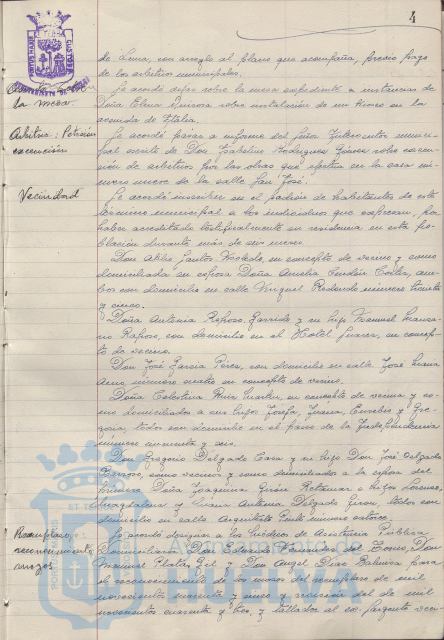 4
de Lima, con arreglo al plano que acompaña, previo pago
de los arbitrios municipales.
la mesa.
Se acordó dejar sobre la mesa expediente a instancias de
Doña Elena Quiroga sobre instalación de un Kiosco en la
avenida de Italia.
Arbitrios: Petición
exención
Se acordó pasar a informe del Señor Interventor munici-
pal escrito de Don Isabelino Rodríguez sobre exen-
ción de arbitrios por las obras que efectúa en la casa nú-
mero nueve de la calle San José.
Vecindad
Se acordó inscribir en el padrón de habitantes de este
término municipal a los individuos que expresan, por
haber acreditado testificalmente su residencia en esta po-
blación durante más de seis meses.
Don Santos en concepto de vecino y como
domiciliada su esposa Doña Amelia am-
bos con domicilio en calle Miguel Redondo número treinta
y cinco.
Doña Antonia Raposo Garrido y su hijo Manuel
Raposo, con domicilio en el Hotel en concep-
to de vecino.
Don José García Pérez, con domicilio en calle José
número en concepto de vecino.
Doña Celestina Ruiz en concepto de vecina y co-
mo domiciliados a sus hijos Josefa, Juana, Eusebio y Gre-
goria, todos con domicilio en el paseo de la Independencia
número cuarenta y seis.
Don Gregorio Delgado Cara y su hijo Don José Delgado
como vecinos y como domiciliados a la esposa del
primero Doña Joaquina Girón Retamar e hijos Lorenzo,
Magdalena y Antonia Delgado Girón, todos con
domicilio en calle Arquitecto Pinto número catorce.
Reemplazo:
reconocimiento
mozos
Se acordó designar a los Médicos de Asistencia Pública
Domiciliaria Don Eduardo Fernández del Torno, Don
Manuel Gil y Don Angel Díaz para
el reconocimiento de los mozos del reemplazo de mil
novecientos cuarenta y cinco y revisión del de mil
novecientos cuarenta y tres, y tallador al ex-sargento veci-